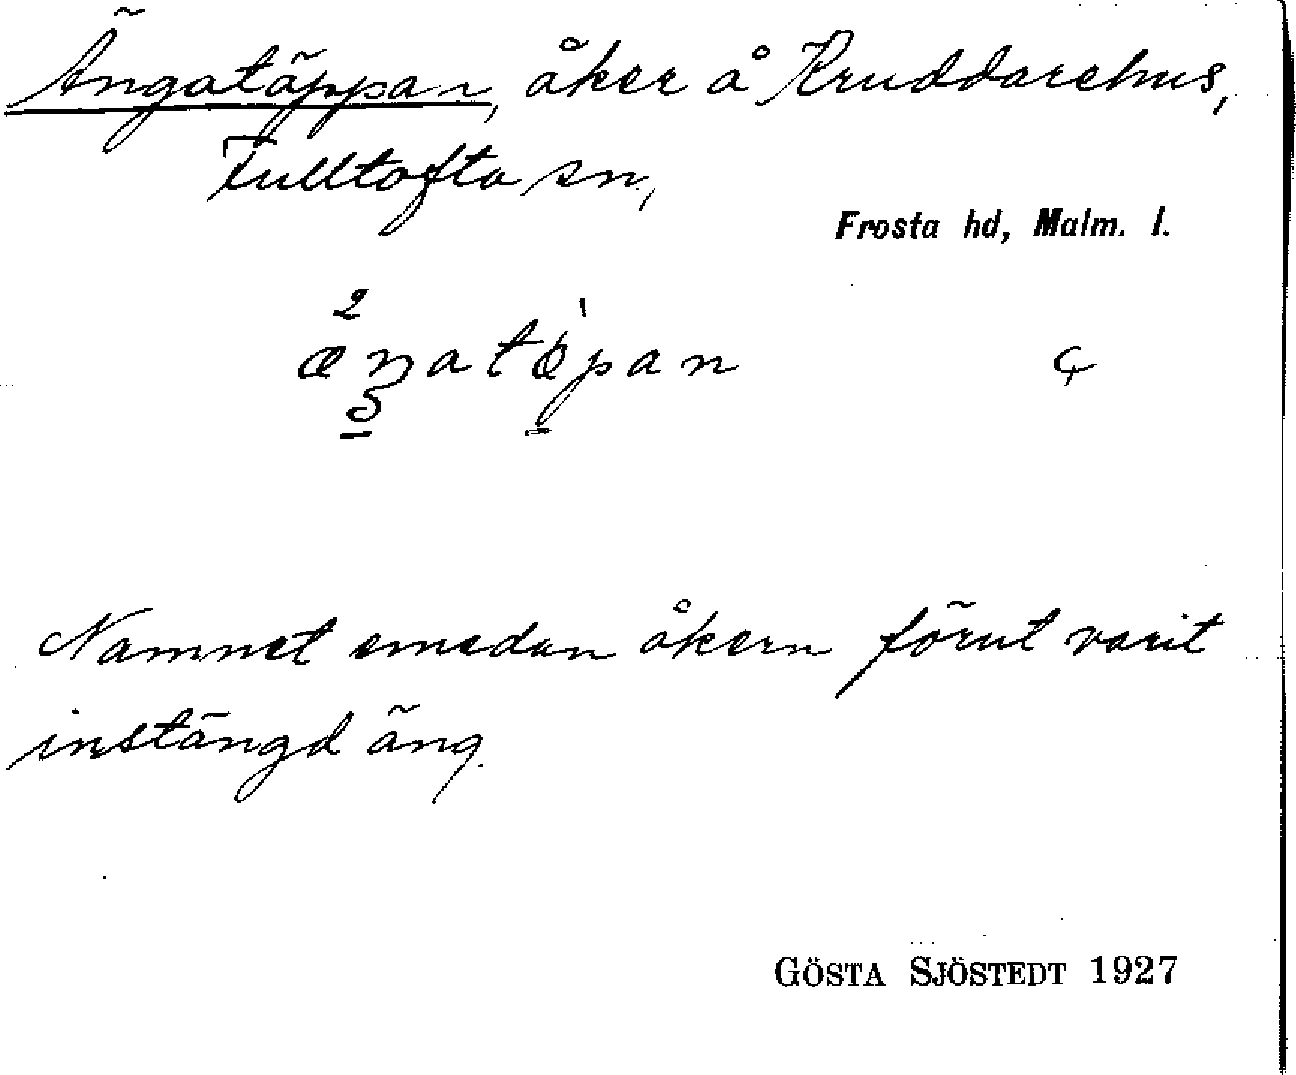 Ängatäppan, åker å Kruddarehus,
Fulltofta sn,
Frosta hd, Malm. l.
Namnet emedan åkern förut varit
instängd äng.
GÖSTA SJÖSTEDT 1927